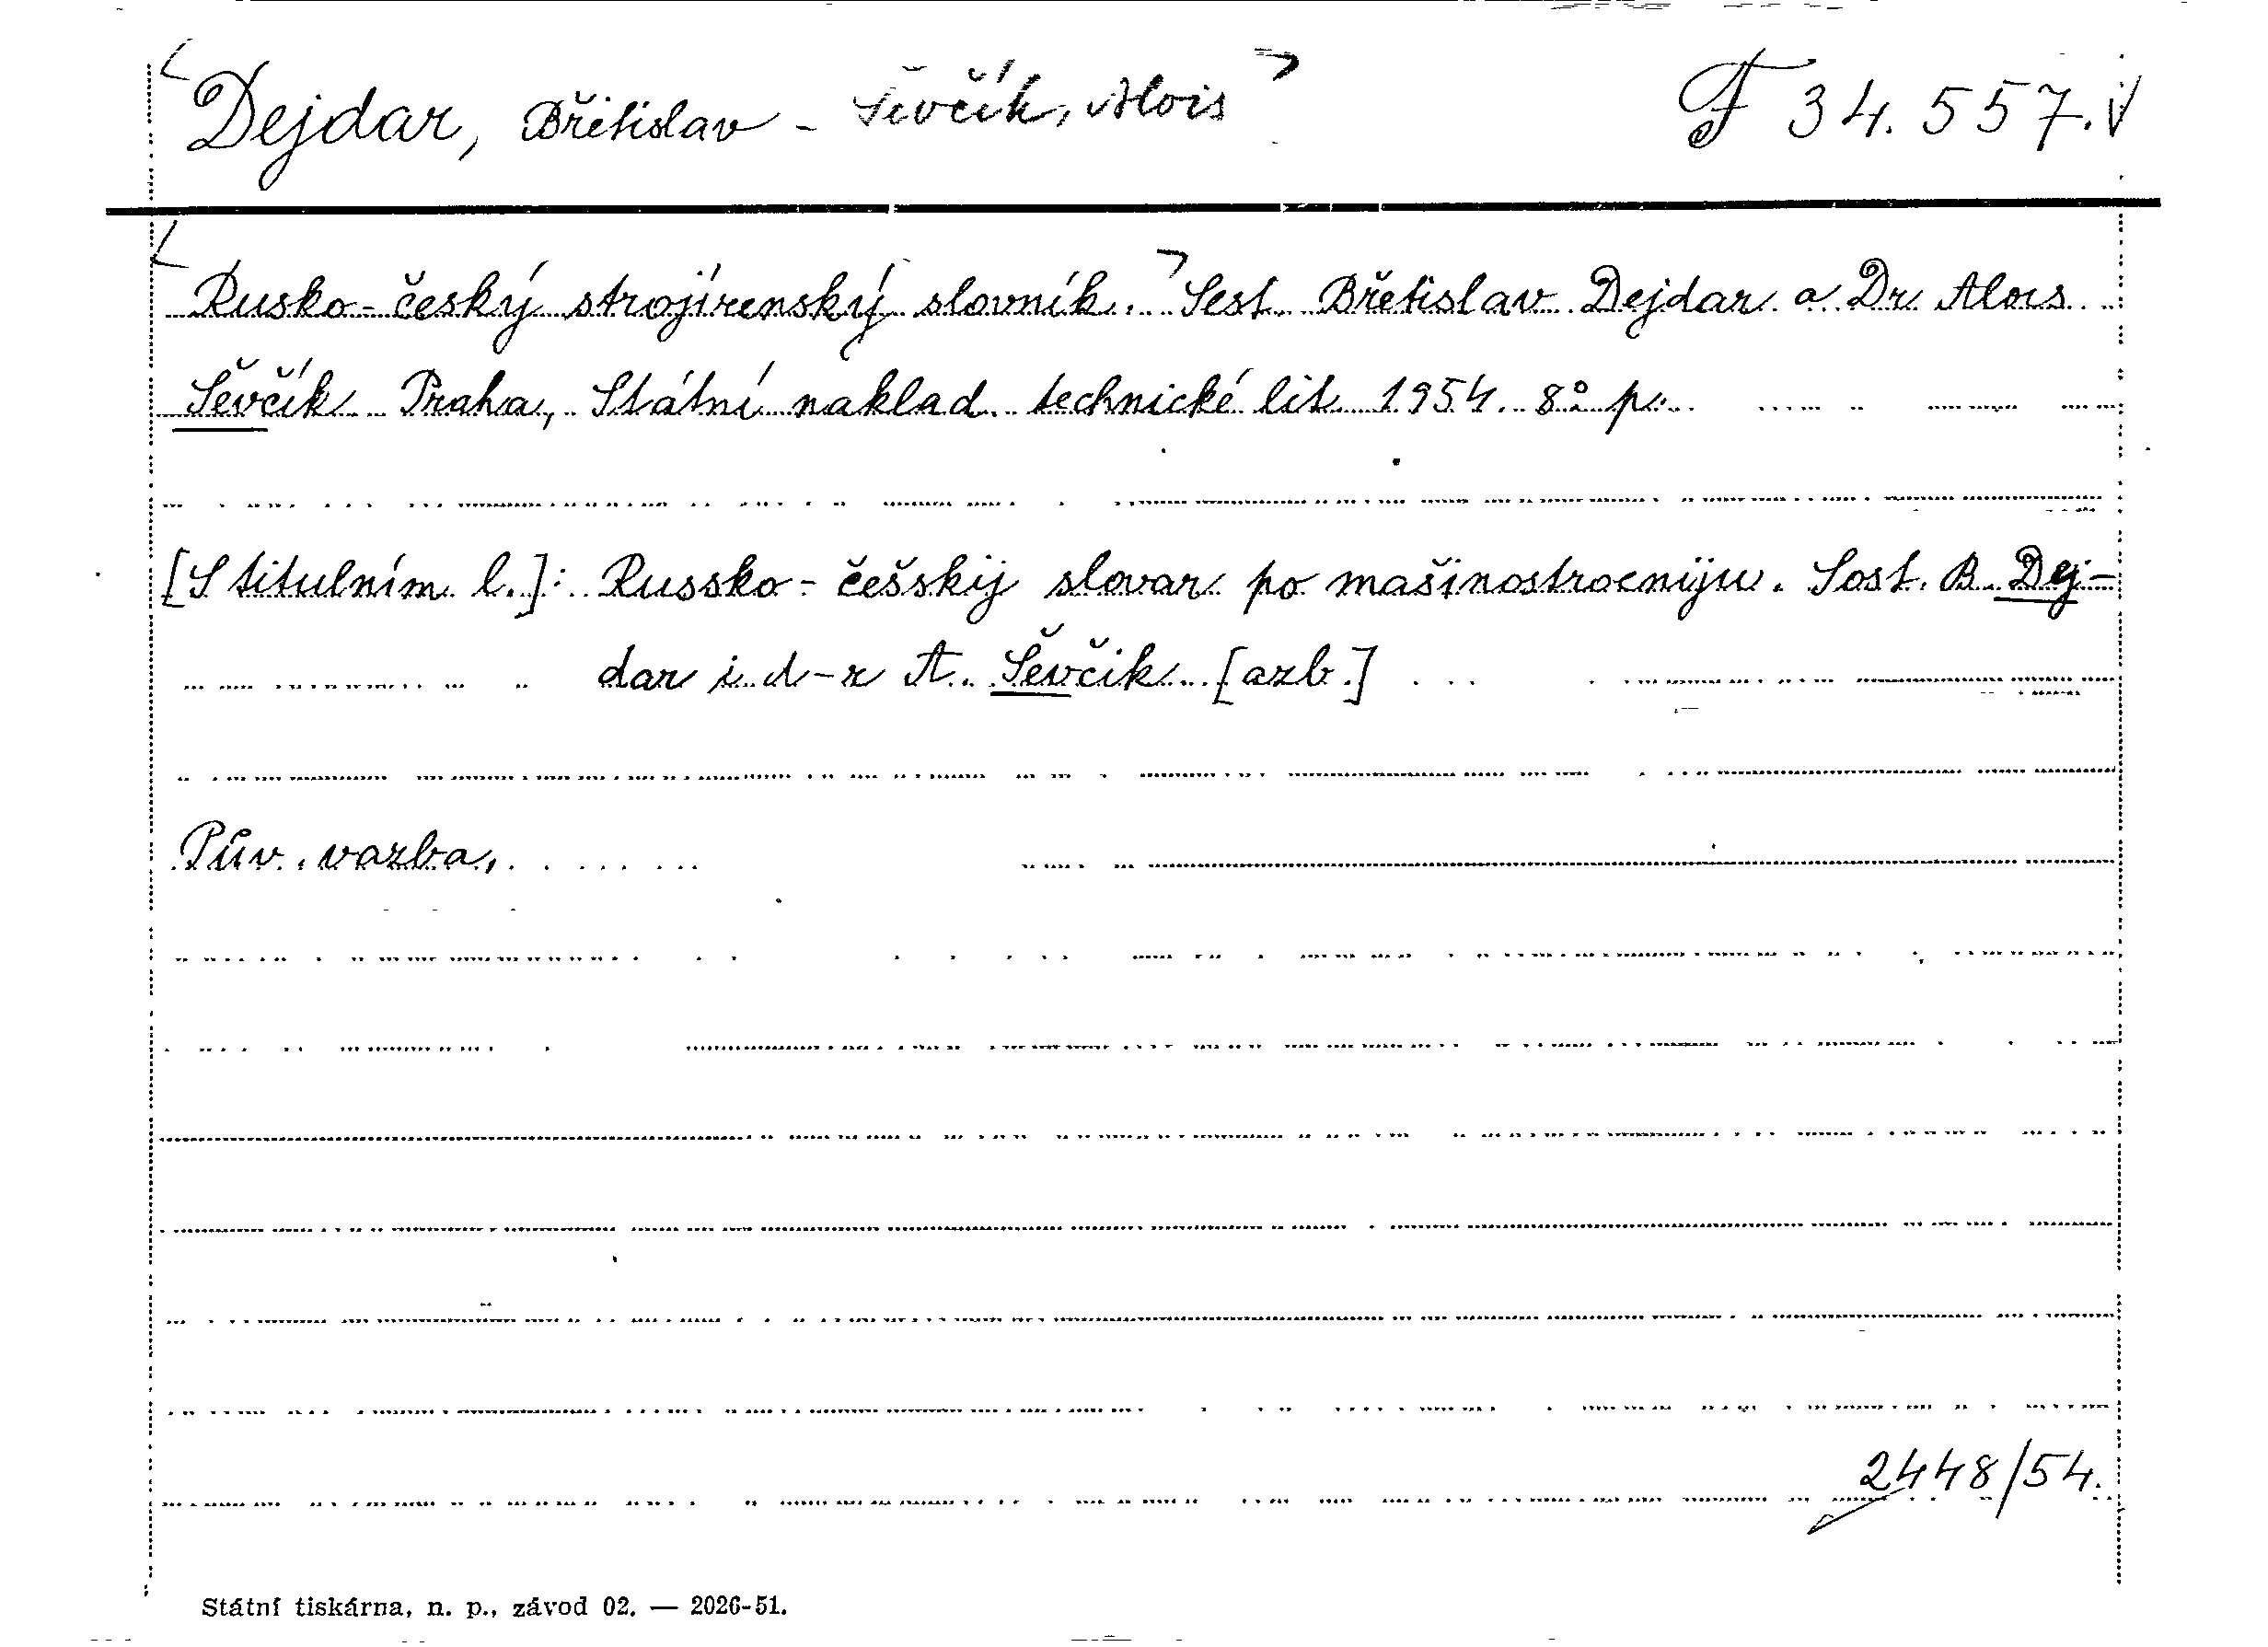 Dejdar, Břetislav - Ševčík, Alois
F 34.557.
Rusko-český strojírenský slovník. Sest. Břetislav Dejdar a Dr. Alois
Ševčík. Praha, Státní naklad. technické lit. 1954. 8° p.
[S titulním l.]: Russko-češskij slovar po mašinostroeniju. Sost. B. Dej-
dar i d-r A. Ševčik [azb.]
Pův. vazba.
2448/54.
Státní tiskárna, n. p., závod 02. — 2026-51.